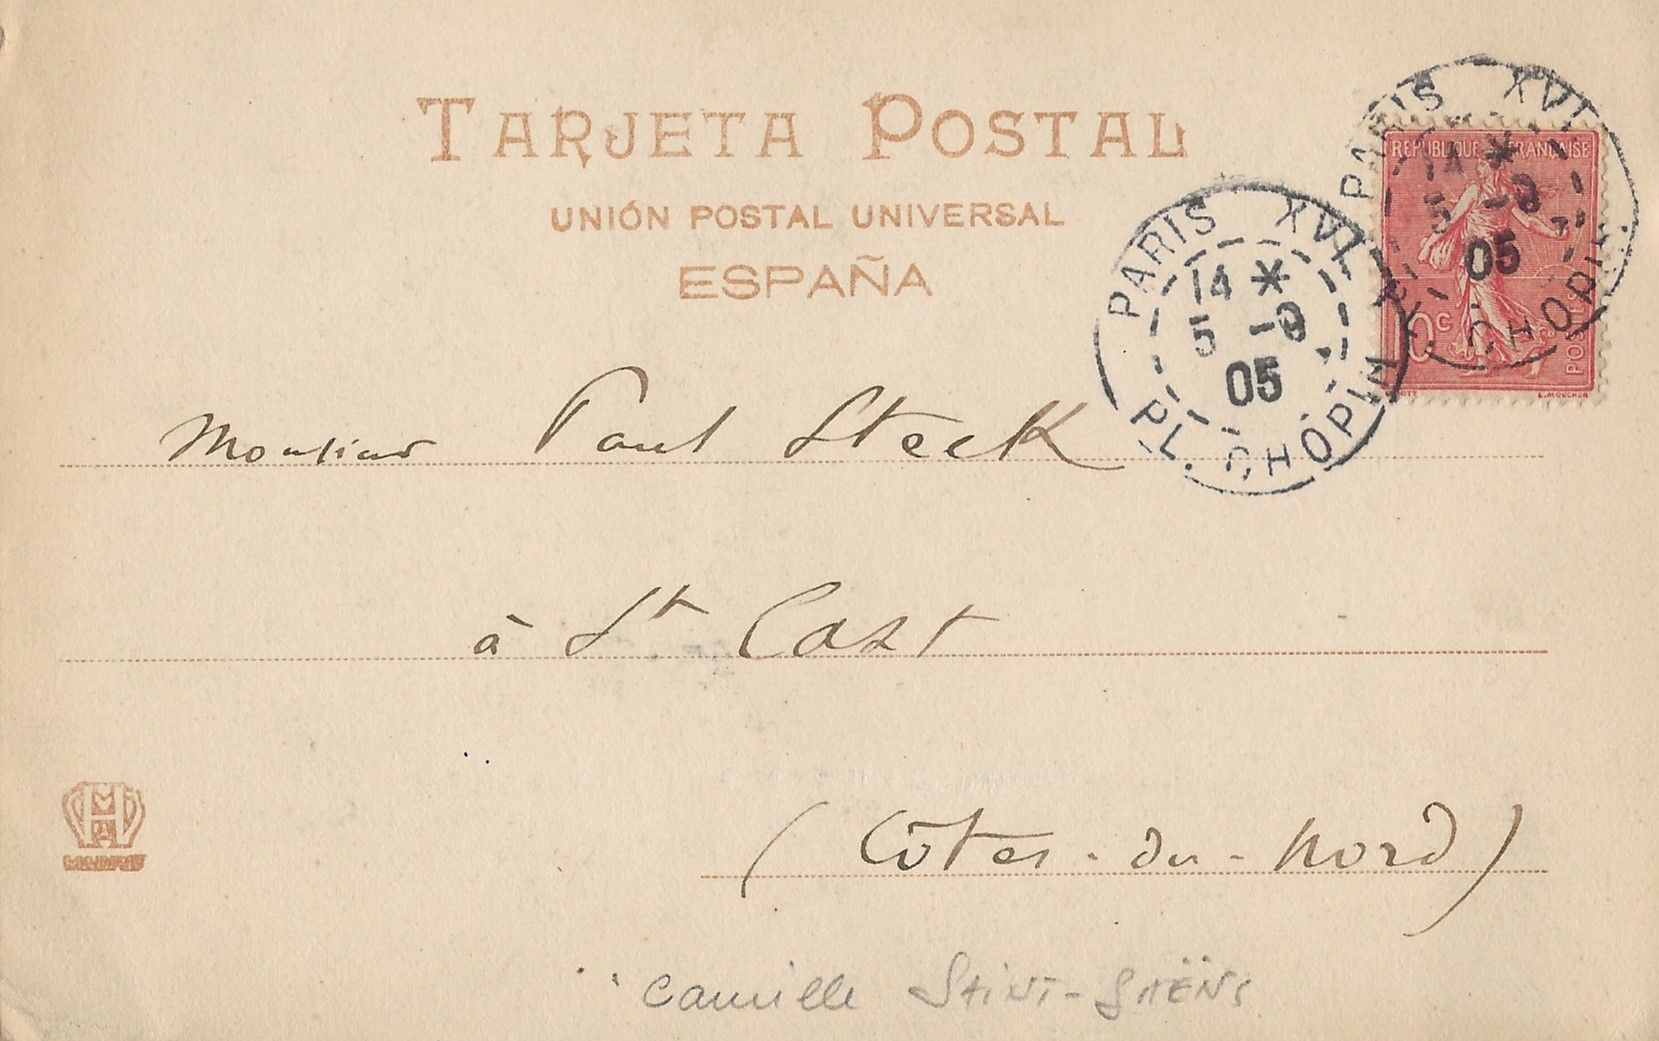 TARJETA POSTAL
UNIÓN POSTAL UNIVERSAL
ESPAÑA
PARIS XVI
14 *
5 -9
05
PL. CHOPIN
PARIS XVI
14 *
5 -9
05
PL. CHOPIN
REPUBLIQUE FRANÇAISE
10c
POSTES
E.MOUCHON
Monsieur Paul Steck
à St Cast
(Côtes-du-Nord)
HM
Camille SAINT-SAËNS